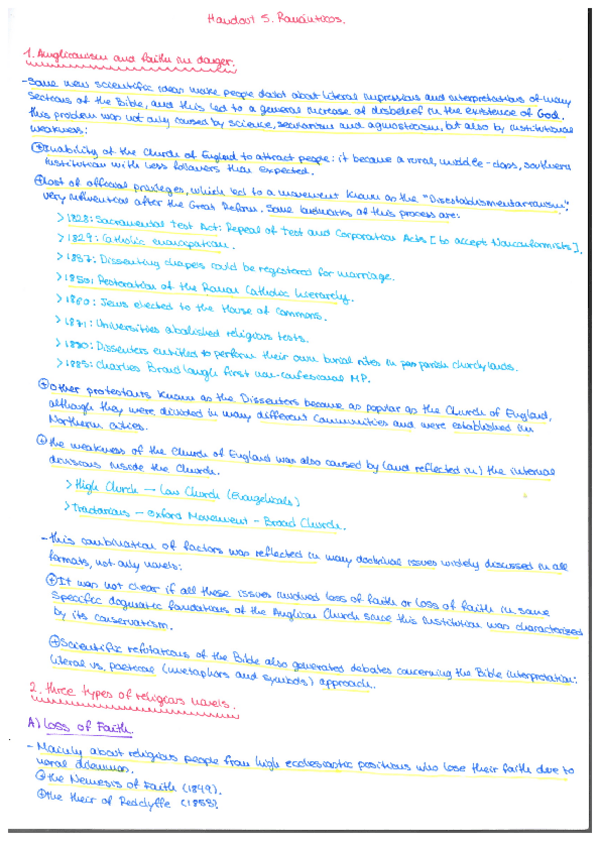 Handout 5. Románticos.
1. Anglicanism and faith in danger.
-Some new scientific ideas make people doubt about literal impressions and interpretations of many
sections of the Bible, and this led to a general increase of disbelief in the existence of God.
This problem was not only caused by science, secularism and agnosticism, but also by institutional
weakness:
Inability of the Church of England to attract people: it became a rural, middle-class, southern
institution with less followers than expected.
Lost of official privileges, which led to a movement known as the "Disestablishmentarianism",
very influential after the Great Reform. Some landmarks of this process are:
> 1828: Sacramental Test Act: Repeal of Test and Corporation Acts [to accept Nonconformists].
> 1829: Catholic emancipation.
> 1837: Dissenting chapels could be registered for marriage.
> 1850: Restoration of the Roman Catholic hierarchy.
> 1860: Jews elected to the House of commons.
> 1871: Universities abolished religious tests.
> 1880: Dissenters entitled to perform their own burial rites in parish churchyards.
> 1885: Charles Bradlaugh first non-confessional MP.
Other protestants known as the Dissenters became as popular as the Church of England,
although they were divided in many different communities and were established in
Northern cities.
The weakness of the Church of England was also caused by (and reflected in) the internal
divisions inside the Church.
> High Church → Low Church (Evangelicals)
> Tractarians → Oxford Movement - Broad Church.
-This combination of factors was reflected in many doctrinal issues widely discussed in all
formats, not only novels:
It was not clear if all these issues involved loss of faith or loss of faith in some
specific dogmatic foundations of the Anglican Church since this institution was characterised
by its conservatism.
Scientific refotations of the Bible also generated debates concerning the Bible interpretation:
literal vs. poetical (metaphors and symbols) approach.
2. Three types of religious novels.
A) Loss of Faith.
- Mainly about religious people from high ecclesiastic positions who lose their faith due to
moral dilemmas.
The Nemesis of Faith (1849).
The Heir of Redclyffe (1853).